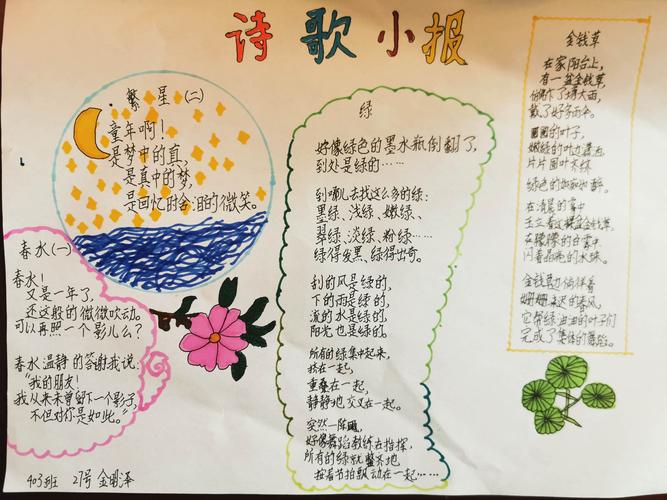 诗歌小报
繁星(二)
童年啊!
是梦中的真,
是真中的梦,
是回忆时含泪的微笑。
春水(一)
春水!
又是一年了,
还这般的微微吹动。
可以再照一个影儿么?
春水温静的答谢我说:
“我的朋友!
我从来未曾留下一个影子,
不但对你是如此。”
绿
好像绿色的墨水瓶倒翻了,
到处是绿的……
到哪儿去找这么多的绿:
墨绿、浅绿、嫩绿、
翠绿、淡绿、粉绿……
绿得发黑、绿得出奇。
刮的风是绿的,
下的雨是绿的,
流的水是绿的,
阳光也是绿的。
所有的绿集中起来,
挤在一起,
重叠在一起,
静静地交叉在一起。
突然一阵风,
好像舞蹈教练在指挥,
所有的绿就整齐地
按着节拍飘动在一起……
金钱草
在家阳台上,
有一盆金钱草,
圆圆的叶子,
片片圆叶齐绿
在清晨的雾中
闪着晶亮的水珠。
金钱草也倚伴着
姗姗来迟的春风,
它帮绿油油的叶子们
完成了集体的舞蹈。
403班 27号 金明泽